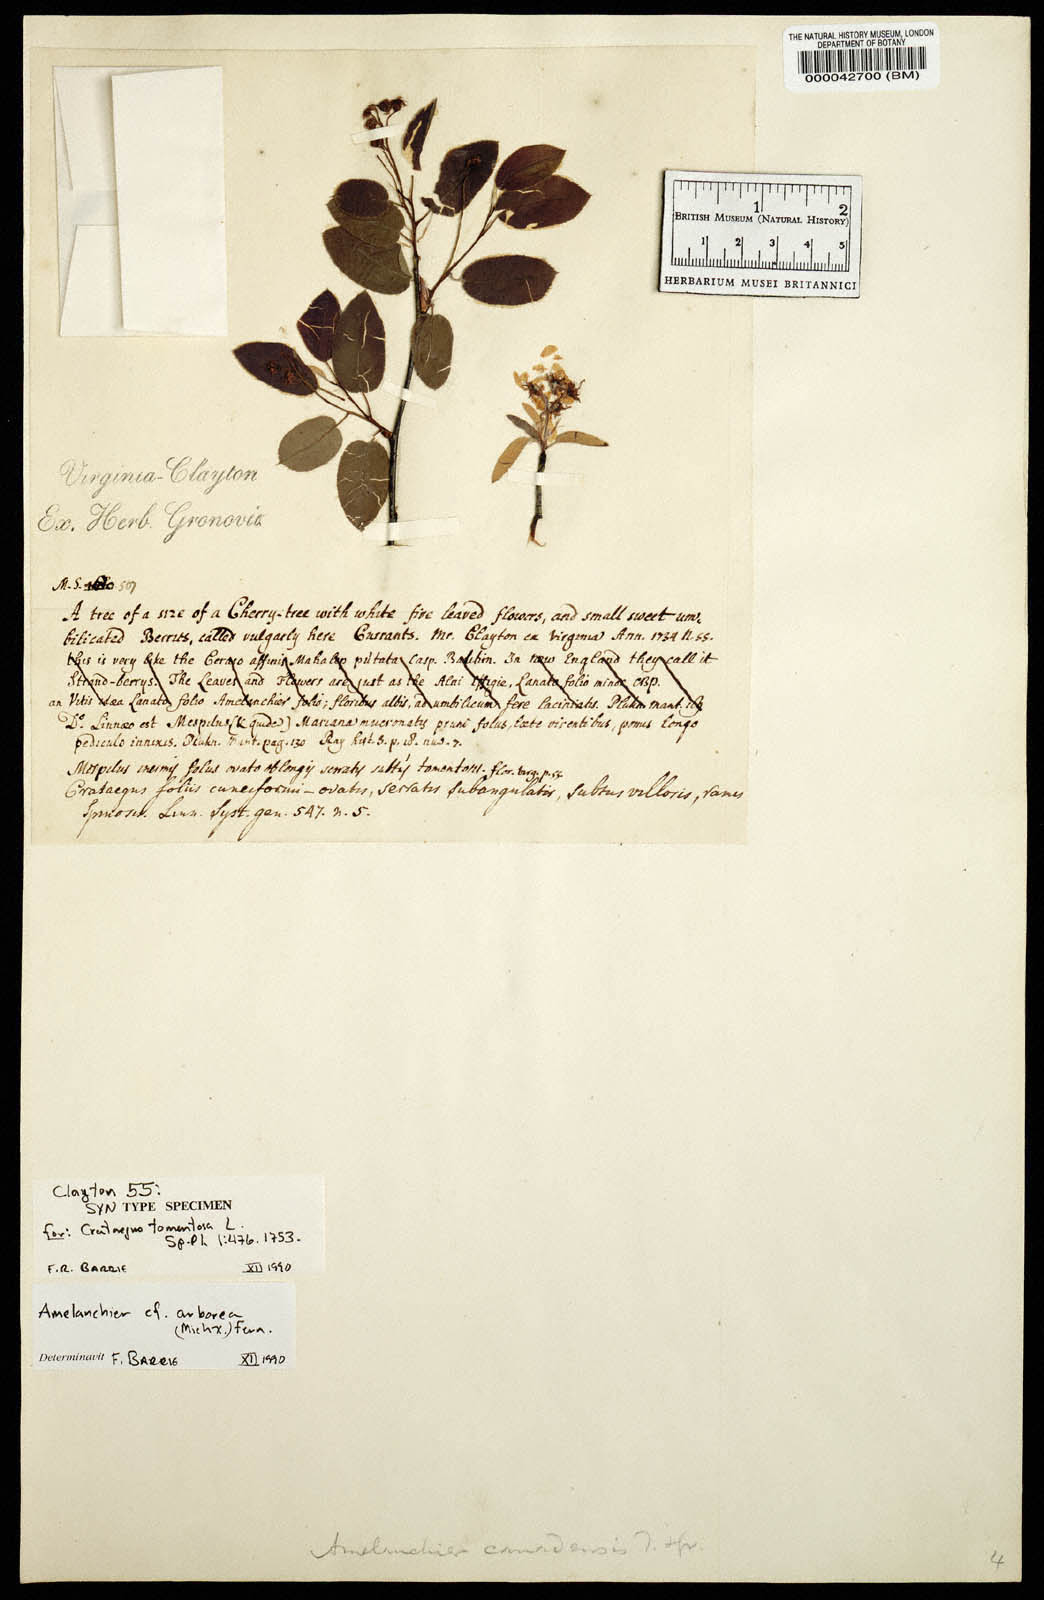 THE NATURAL HISTORY MUSEUM, LONDON
DEPARTMENT OF BOTANY
000042700 (BM)
1 2
BRITISH MUSEUM (NATURAL HISTORY)
1 2 3 4 5
HERBARIUM MUSEI BRITANNICI
Virginia-Clayton
Ex. Herb. Gronovii
M.S. 507
A tree of a size of a Cherry-tree with white five leaved flowers, and small sweet um-
bilicated Berrits, called vulgarly here Currants. Mr. Clayton ex Virginia Ann. 1734 N. 55.
this is very like the Ceraso affinis Mahaleb putata Casp. Bauhin. In new England they call it
berrys. The Leaves and Flowers are just as the Alni effigie, Lanato folio minor CBP.
an Vitis idæa Lanato folio Amelanchier folio; floribus albis, ad umbilicum fere laciniatis. Plukn. mant.
Do. Linnæo est Mespilus Mariana mucronatis pruni foliis, læte virentibus, pomis longo
pediculo innixis. Plukn. mant. pag. 130 Ray hist. 3. p. 18. 7.
Mespilus inermis foliis ovato oblongis serratis subtus tomentosis. flor. virg. p.
Crataegus foliis cuneiformi-ovatis, serratis subangulatis, subtus villosis, ramis
spinosis. Linn. Syst. gen. 547. n. 5.
Clayton 55:
SYN TYPE SPECIMEN
for: Crataegus tomentosa L.
Sp. Pl. 1:476. 1753.
F.R. BARRIE XI 1990
Amelanchier cf. arborea
(Michx.) Fern.
Determinavit F. BARRIE XI 1990
Amelanchier canadensis
4